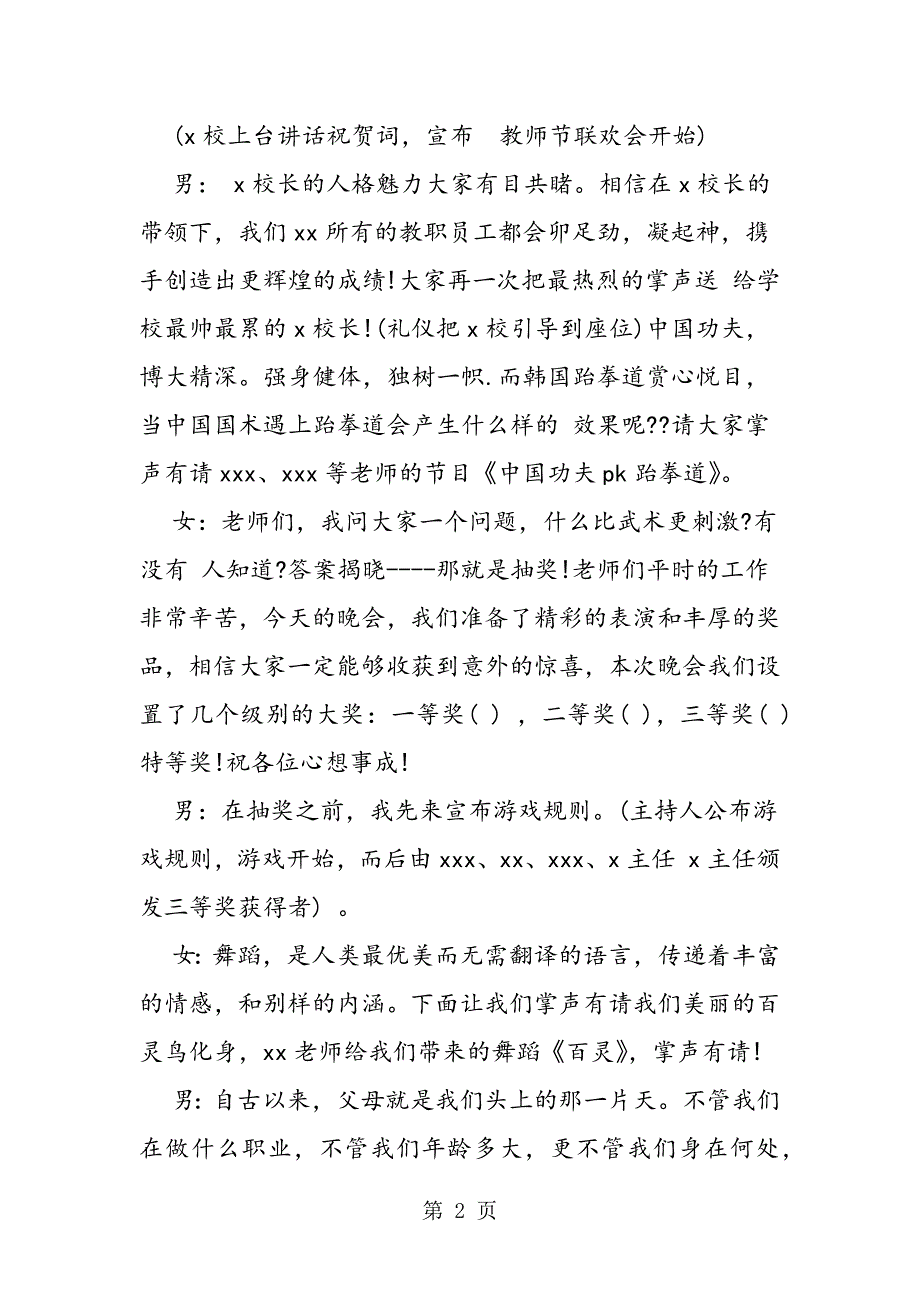 (x校上台讲话祝贺词，宣布 教师节联欢会开始)
男： x校长的人格魅力大家有目共睹。相信在x校长的
带领下，我们xx所有的教职员工都会卯足劲，凝起神，携
手创造出更辉煌的成绩!大家再一次把最热烈的掌声送 给学
校最帅最累的x校长!(礼仪把x校引导到座位)中国功夫，
博大精深。强身健体，独树一帜.而韩国跆拳道赏心悦目，
当中国国术遇上跆拳道会产生什么样的 效果呢??请大家掌
声有请xxx、xxx等老师的节目《中国功夫pk跆拳道》。
女：老师们，我问大家一个问题，什么比武术更刺激?有
没有 人知道?答案揭晓----那就是抽奖!老师们平时的工作
非常辛苦，今天的晚会，我们准备了精彩的表演和丰厚的奖
品，相信大家一定能够收获到意外的惊喜，本次晚会我们设
置了几个级别的大奖：一等奖( ) ，二等奖( )，三等奖( )
特等奖!祝各位心想事成!
男：在抽奖之前，我先来宣布游戏规则。(主持人公布游
戏规则，游戏开始，而后由xxx、xx、xxx、x主任 x主任颁
发三等奖获得者) 。
女：舞蹈，是人类最优美而无需翻译的语言，传递着丰富
的情感，和别样的内涵。下面让我们掌声有请我们美丽的百
灵鸟化身，xx老师给我们带来的舞蹈《百灵》，掌声有请!
男：自古以来，父母就是我们头上的那一片天。不管我们
在做什么职业，不管我们年龄多大，更不管我们身在何处，
第 2 页